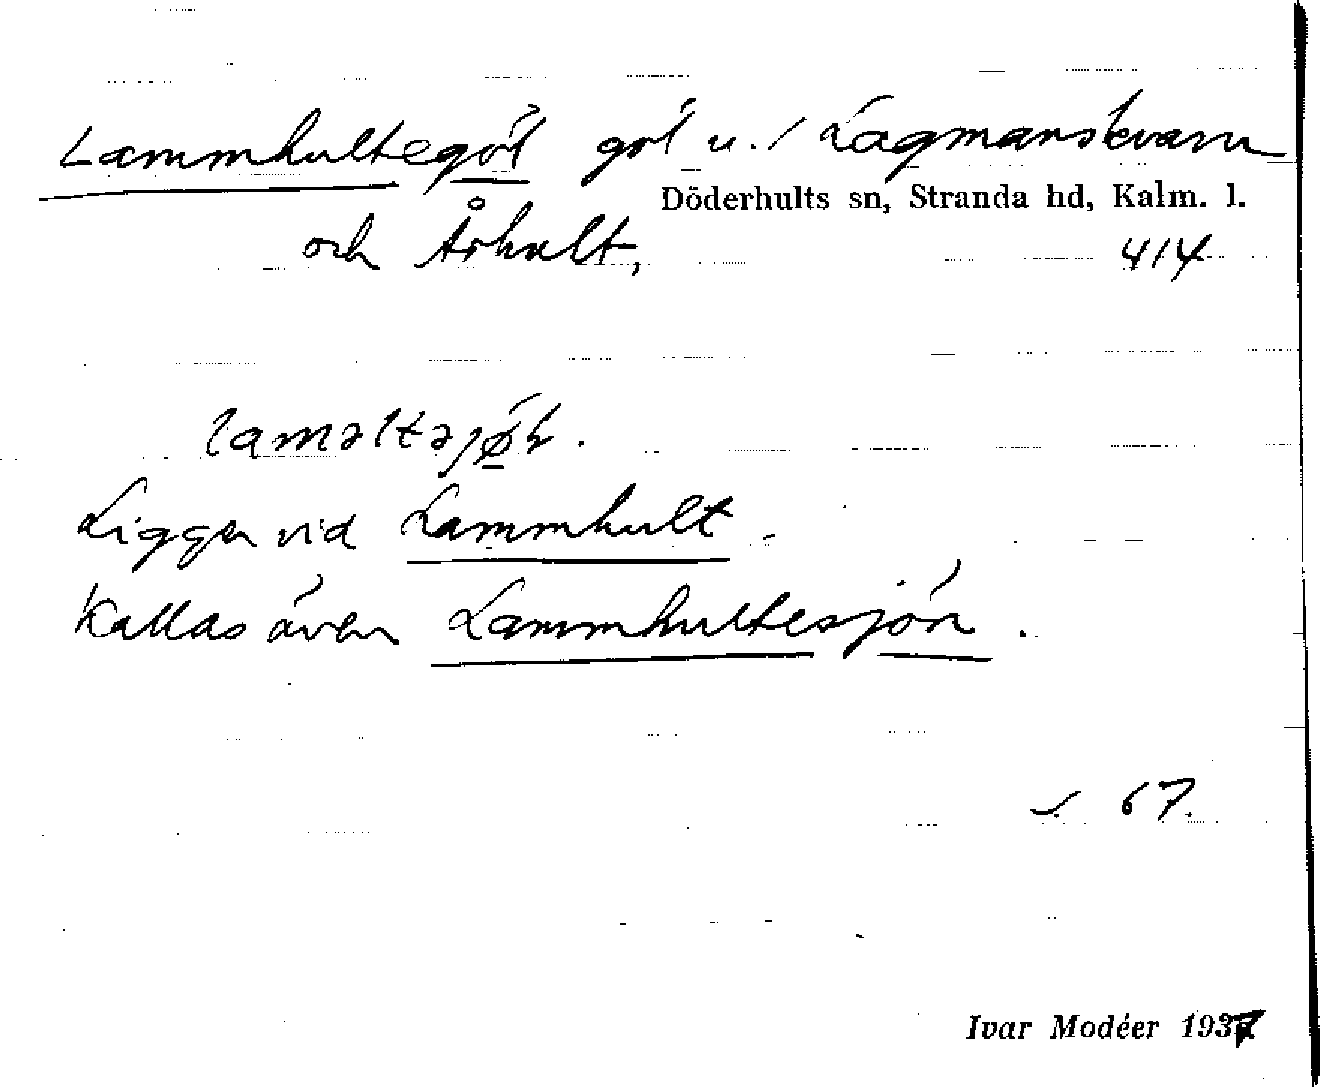 Lammhultegöl göl u./ Lagmanskvarn
Döderhults sn, Stranda hd, Kalm. l.
och Århult, 414
lamǝltǝjø̀l.
Ligger vid Lammhult.
Kallas även Lammhultesjön.
s. 67.
Ivar Modéer 1937